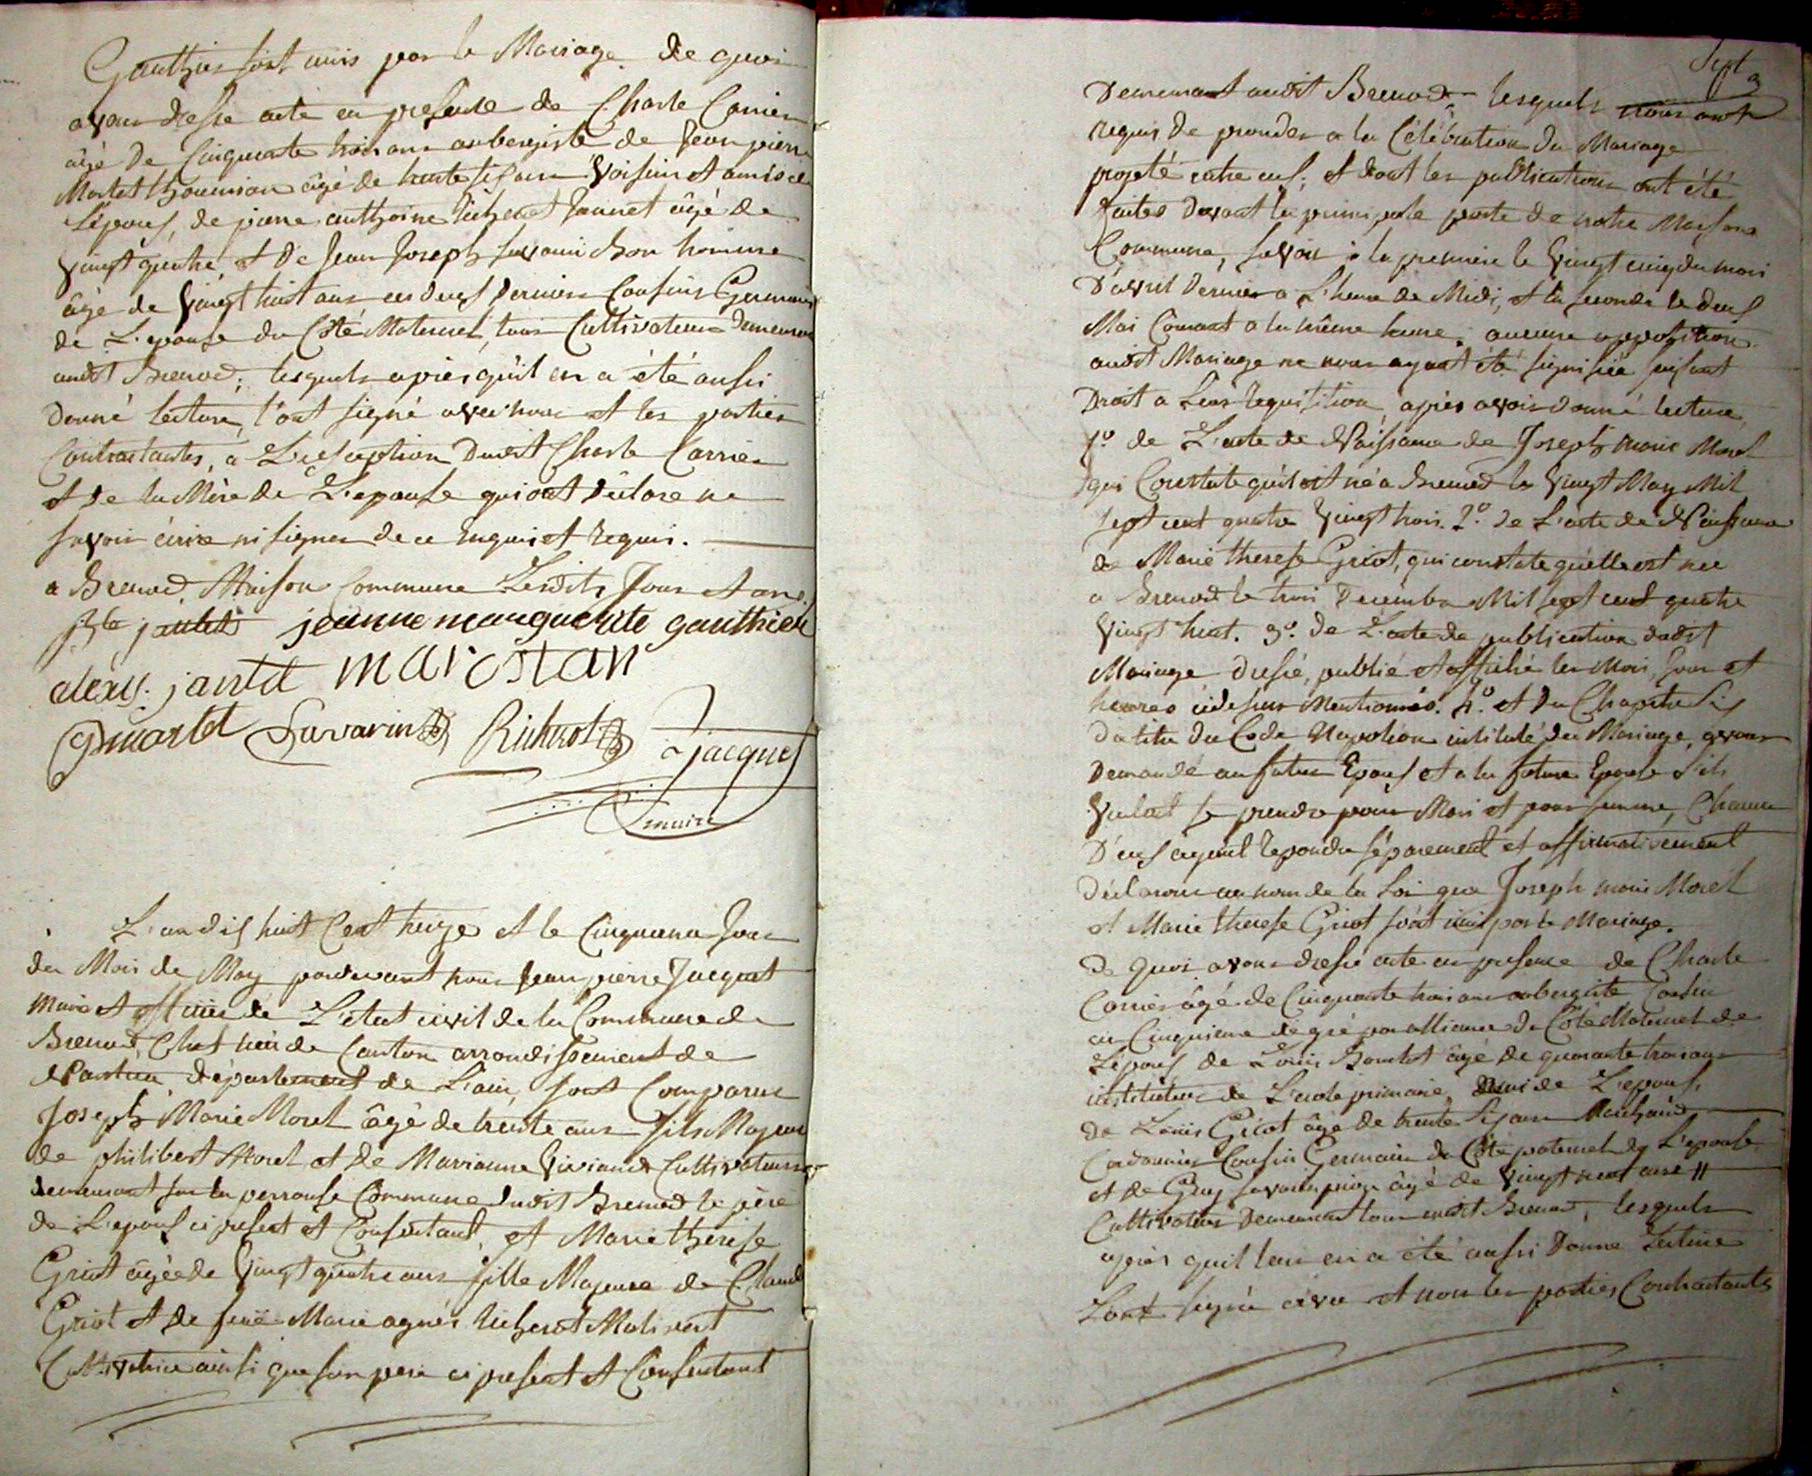 Gauthier sont unis par le Mariage. de quoi
avons dressé acte en presence de Charle Carrier
âgé de Cinquante trois ans aubergiste de Jean pierre
Martet âgé de trente six ans Voisins et amis de
L'epoux, de pierre anthoine Richerot Jannet âgé de
Vingt quatre, et de Jean Joseph Savarin Bon homme
âgé de Vingt huit ans ces deux Derniers Cousins Germains
de L'epouse du Côté Maternel, tous Cultivateurs Demeurant
audit Brenod; lesquels après qu'il en a été aussi
Donné lecture, l'ont signé avec nous et les parties
Contractantes, a L'exception Dudit Charle Carrier
et de la Mère de L'epouse qui ont Déclaré ne
savoir écrire ni signer de ce Enquis et Requis.
a Brenod Maison Commune Lesdits Jour et an.
jph jantet jeanne marguerite gauthier
alexis jantet
martet Savarin Richerot jacquet
maire
L'an dix huit Cent treize et le Cinquieme Jour
du Mois de May pardevant nous Jean pierre Jacquet
Maire et officier de L'etat civil de la Commune de
Brenod, Chef lieu de Canton arrondissement de
Nantua, département de L'ain, sont Comparus
Joseph Marie Morel âgé de trente ans fils Majeur
de philibert Morel et de Marianne Viviand Cultivateurs
demeurant sur la perrouse Commune dudit Brenod le père
de L'epoux ci present et Consentant, et Marie therese
Griot âgée de Vingt quatre ans fille Majeure de Claude
Griot et de feuë Marie agnés Richerot Molivert
Cultivatrice ainsi que son pere ci present et Consentant
Sept
Demeurant audit Brenod lesquels nous ont
requis de proceder a la Célébration du Mariage
projeté entre eux; et dont les publications ont été
faites Devant la principale porte de notre Maison
Commune, savoir: la premiere le Vingt cinq du mois
D'avril Dernier a L'heure de Midi, et la seconde le deux
Mai Courant a la même heure. aucune opposition
audit Mariage ne nous ayant été signifiée faisant
Droit a Leur Requisition, après avoir donné lecture,
1º de L'acte de Naissance de Joseph Marie Morel
qui Constate qu'il est né a Brenod le Vingt May Mil
sept cent quatre Vingt trois. 2º de L'acte de Naissance
de Marie therese Griot, qui constate qu'elle est née
a Brenod le trois Decembre Mil sept cent quatre
Vingt huit. 3º. de L'acte de publication dudit
Mariage dressé, publié et affiché les Mois, Jour et
heures cidessus Mentionnés. 4º. et du Chapitre Six
du titre du Code Napoléon intitulé du Mariage, avons
Demandé au futur Epoux et a la future Epouse s'ils
Veulent se prendre pour Mari et pour femme, Chacun
D'eux ayant repondu séparement et affirmativement
déclarons au nom de la Loi que Joseph Marie Morel
et Marie therese Griot sont unis par le Mariage.
de quoi avons dressé acte en presence de Charle
Carrier âgé de Cinquante trois ans aubergiste Cousin
au Cinquieme degré par alliance du Côté Maternel de
L'epoux de Louis âgé de quarante trois ans
instituteur de L'ecole primaire, ami de L'epoux,
de Louis Griot âgé de trente six ans Marchand
Cordonnier Cousin Germain du Côté paternel de L'epouse
et de Guy Savarin âgé de Vingt neuf ans
Cultivateur Demeurant tous audit Brenod, lesquels
après qu'il leur en a été aussi Donné Lecture
L'ont signé avec et nous les parties Contractantes